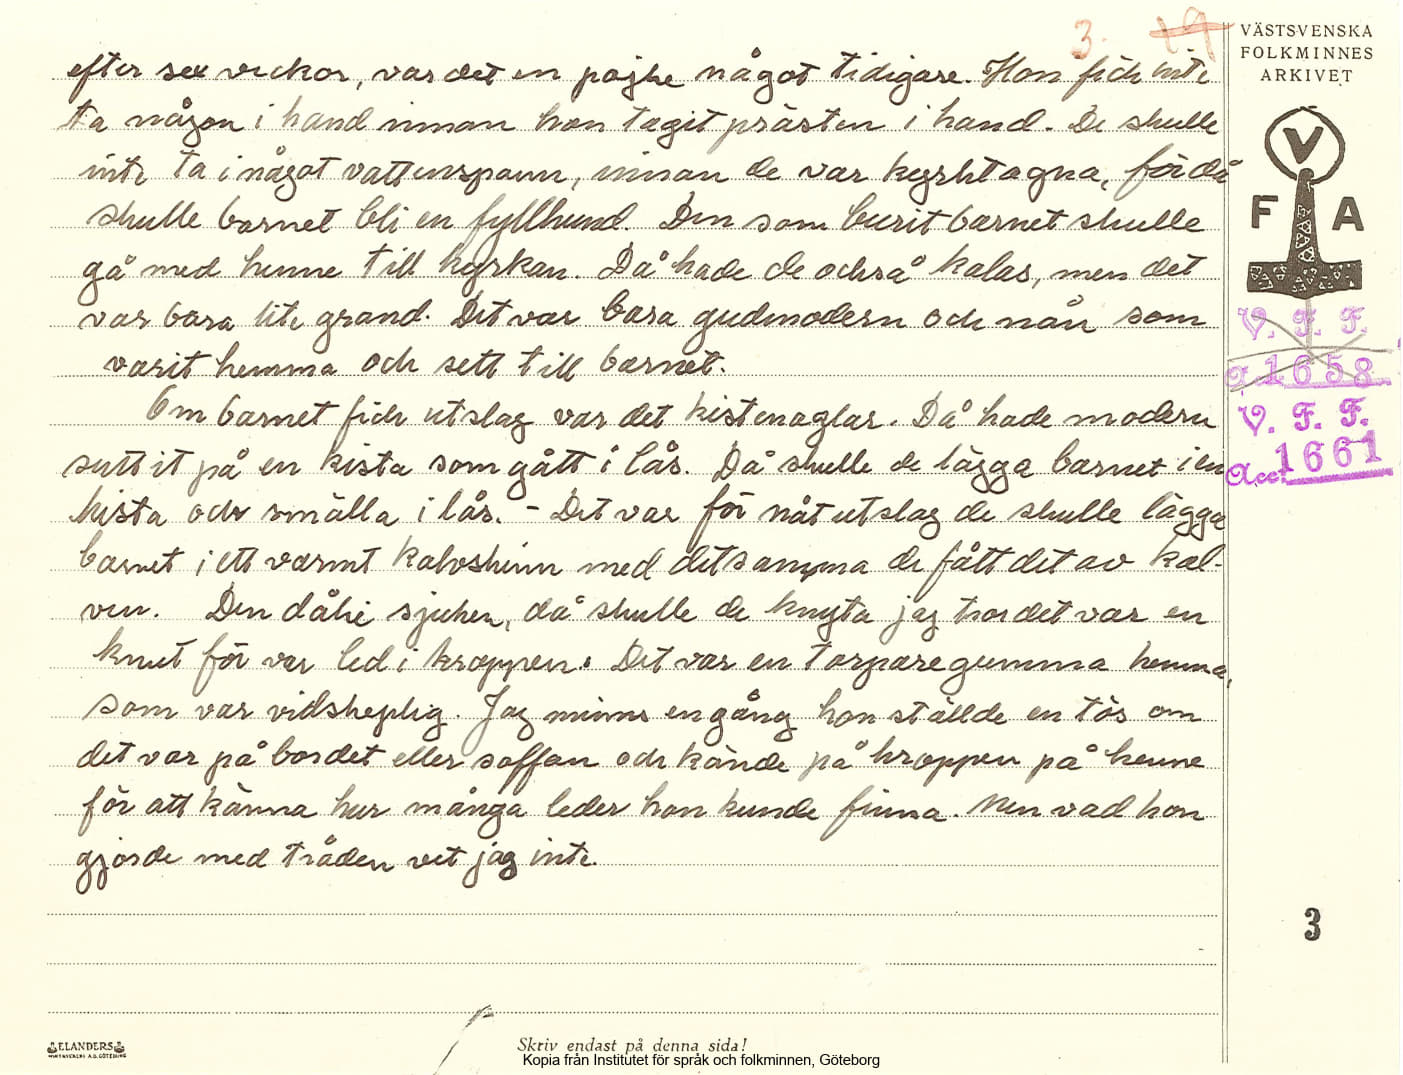 3. 19
VÄSTSVENSKA
FOLKMINNES
ARKIVET
V
F A
V. F. F.
1658
V. F. F.
Acc. 1661
efter sex veckor, var det en pojke något tidigare. Hon fick inte
ta någon i hand innan hon tagit prästen i hand. De skulle
inte ta i något vattenspann, innan de var kyrktagna, för då
skulle barnet bli en fyllhund. Den som burit barnet skulle
gå med henne till kyrkan. Då hade de också kalas, men det
var bara lite grand. Det var bara gudmodern och nån som
varit hemma och sett till barnet.
Om barnet fick utslag var det kistenaglar. Då hade modern
suttit på en kista som gått i lås. Då skulle de lägga barnet i en
kista och smälla i lås. - Det var för nåt utslag de skulle lägga
barnet i ett varmt kalvskinn med detsamma de fått det av kal-
ven. Den dåke sjuken, då skulle de knyta jag tror det var en
knut för var led i kroppen. Det var en torparegumma hemma,
som var vidskeplig. Jag minns en gång hon ställde en tös om
det var på bordet eller soffan och kände på kroppen på henne
för att känna hur många leder hon kunde finna. Men vad hon
gjorde med tråden vet jag inte.
3
ELANDERS
Skriv endast på denna sida!
Kopia från Institutet för språk och folkminnen, Göteborg